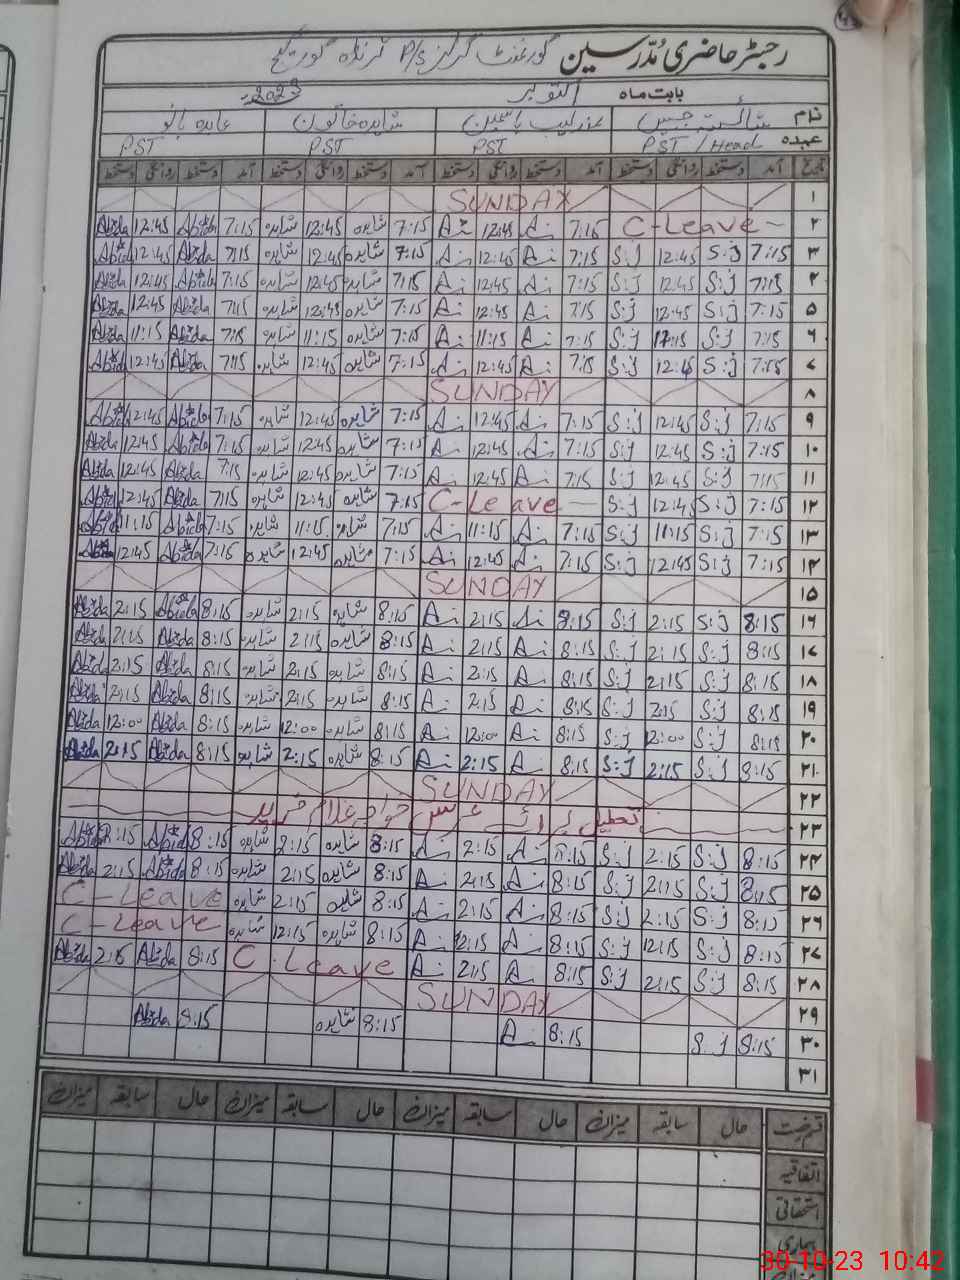 رجسٹر حاضری مُدّرسین گورنمنٹ گرلز P/S
بابت ماہ اکتوبر 2023
نام شائستہ جبیں عندلیب یاسمین شاہدہ خاتون عابدہ بانو
عہدہ PST/Head PST PST PST
تاریخ آمد دستخط روانگی دستخط آمد دستخط روانگی دستخط آمد دستخط روانگی دستخط آمد دستخط روانگی دستخط
۱ SUNDAY
۲ C-Leave 7:15 12:45 7:15 شاہدہ 12:45 شاہدہ 7:15 Abida 12:45 Abida
۳ 7:15 S:J 12:45 S:J 7:15 12:45 7:15 شاہدہ 12:45 شاہدہ 7:15 Abida 12:45 Abida
۴ 7:15 S:J 12:45 S:J 7:15 12:45 7:15 شاہدہ 12:45 شاہدہ 7:15 Abida 12:45 Abida
۵ 7:15 S:J 12:45 S:J 7:15 12:45 7:15 شاہدہ 12:45 شاہدہ 7:15 Abida 12:45 Abida
۶ 7:15 S:J 11:15 S:J 7:15 11:15 7:15 شاہدہ 11:15 شاہدہ 7:15 Abida 11:15 Abida
۷ 7:15 S:J 12:45 S:J 7:15 12:45 7:15 شاہدہ 12:45 شاہدہ 7:15 Abida 12:45 Abida
۸ SUNDAY
۹ 7:15 S:J 12:45 S:J 7:15 12:45 7:15 شاہدہ 12:45 شاہدہ 7:15 Abida 12:45 Abida
۱۰ 7:15 S:J 12:45 S:J 7:15 12:45 7:15 شاہدہ 12:45 شاہدہ 7:15 Abida 12:45 Abida
۱۱ 7:15 S:J 12:45 S:J 7:15 12:45 7:15 شاہدہ 12:45 شاہدہ 7:15 Abida 12:45 Abida
۱۲ 7:15 S:J 12:45 S:J C-Leave 7:15 شاہدہ 12:45 شاہدہ 7:15 Abida 12:45 Abida
۱۳ 7:15 S:J 11:15 S:J 7:15 11:15 7:15 شاہدہ 11:15 شاہدہ 7:15 Abida 11:15 Abida
۱۴ 7:15 S:J 12:45 S:J 7:15 12:45 7:15 شاہدہ 12:45 شاہدہ 7:15 Abida 12:45 Abida
۱۵ SUNDAY
۱۶ 8:15 S:J 2:15 S:J 8:15 2:15 8:15 شاہدہ 2:15 شاہدہ 8:15 Abida 2:15 Abida
۱۷ 8:15 S:J 2:15 S:J 8:15 2:15 8:15 شاہدہ 2:15 شاہدہ 8:15 Abida 2:15 Abida
۱۸ 8:15 S:J 2:15 S:J 8:15 2:15 8:15 شاہدہ 2:15 شاہدہ 8:15 Abida 2:15 Abida
۱۹ 8:15 S:J 2:15 S:J 8:15 2:15 8:15 شاہدہ 2:15 شاہدہ 8:15 Abida 2:15 Abida
۲۰ 8:15 S:J 12:00 S:J 8:15 12:00 8:15 شاہدہ 12:00 شاہدہ 8:15 Abida 12:00 Abida
۲۱ 8:15 S:J 2:15 S:J 8:15 2:15 8:15 شاہدہ 2:15 شاہدہ 8:15 Abida 2:15 Abida
۲۲ SUNDAY
۲۳ تعطیل برائے عرس خواجہ غلام فرید
۲۴ 8:15 S:J 2:15 S:J 8:15 2:15 8:15 شاہدہ 2:15 شاہدہ 8:15 Abida 2:15 Abida
۲۵ 8:15 S:J 2:15 S:J 8:15 2:15 8:15 شاہدہ 2:15 شاہدہ 8:15 Abida 2:15 Abida
۲۶ 8:15 S:J 2:15 S:J 8:15 2:15 8:15 شاہدہ 2:15 شاہدہ C-Leave
۲۷ 8:15 S:J 12:15 S:J 8:15 12:15 8:15 شاہدہ 12:15 شاہدہ C-Leave
۲۸ 8:15 S:J 2:15 S:J 8:15 2:15 C.Leave 8:15 Abida 2:15 Abida
۲۹ SUNDAY
۳۰ 8:15 S:J 8:15 8:15 شاہدہ 8:15 Abida
۳۱
قسم رخصت حال سابقہ میزان حال سابقہ میزان حال سابقہ میزان حال سابقہ میزان
اتفاقیہ
استحقاقی
بیماری
میزان
30-10-23 10:42